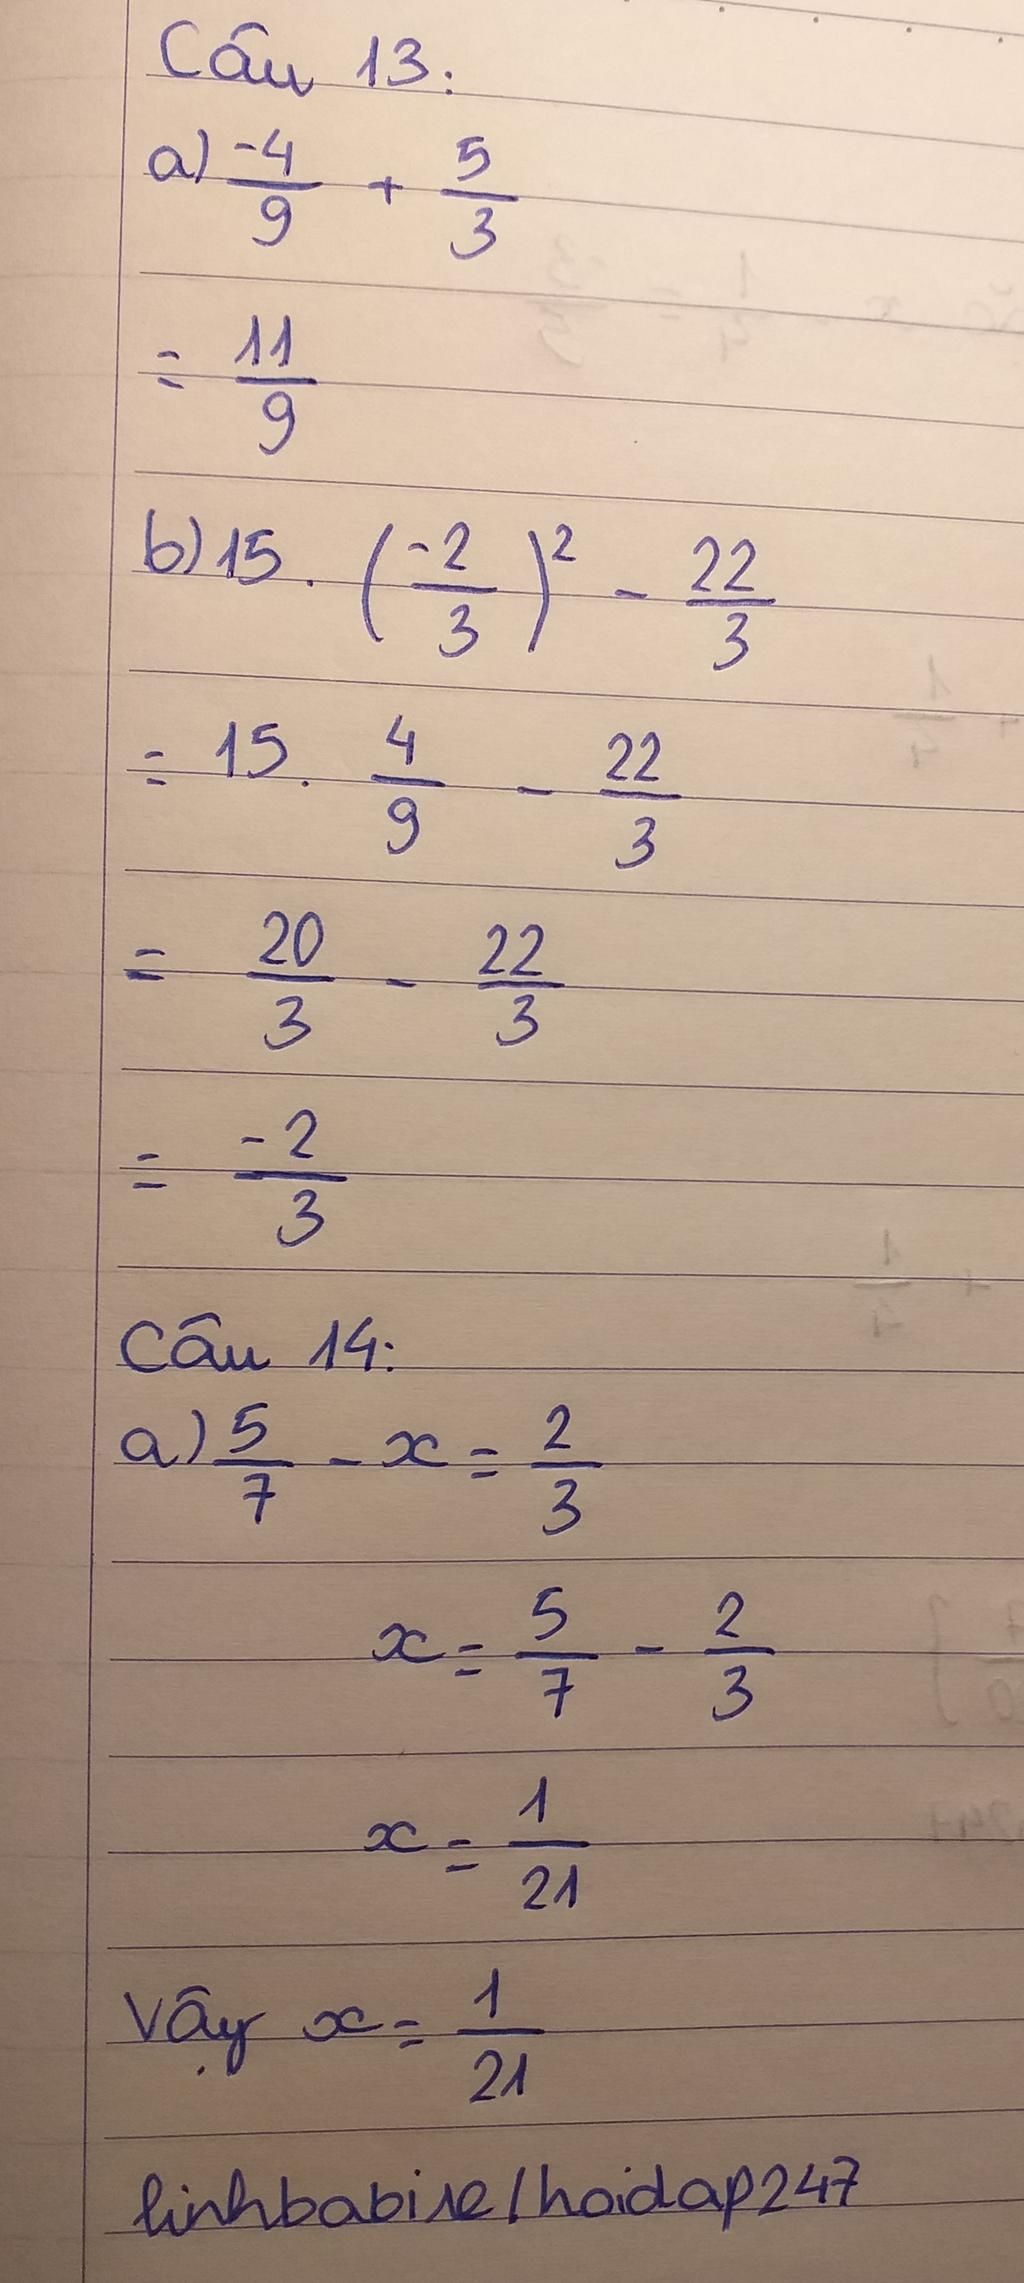 Câu 13:
a) -4/9 + 5/3
= 11/9
b) 15. (-2/3)² - 22/3
= 15. 4/9 - 22/3
= 20/3 - 22/3
= -2/3
Câu 14:
a) 5/7 - x = 2/3
x = 5/7 - 2/3
x = 1/21
Vậy x = 1/21
linhbabie/hoidap247